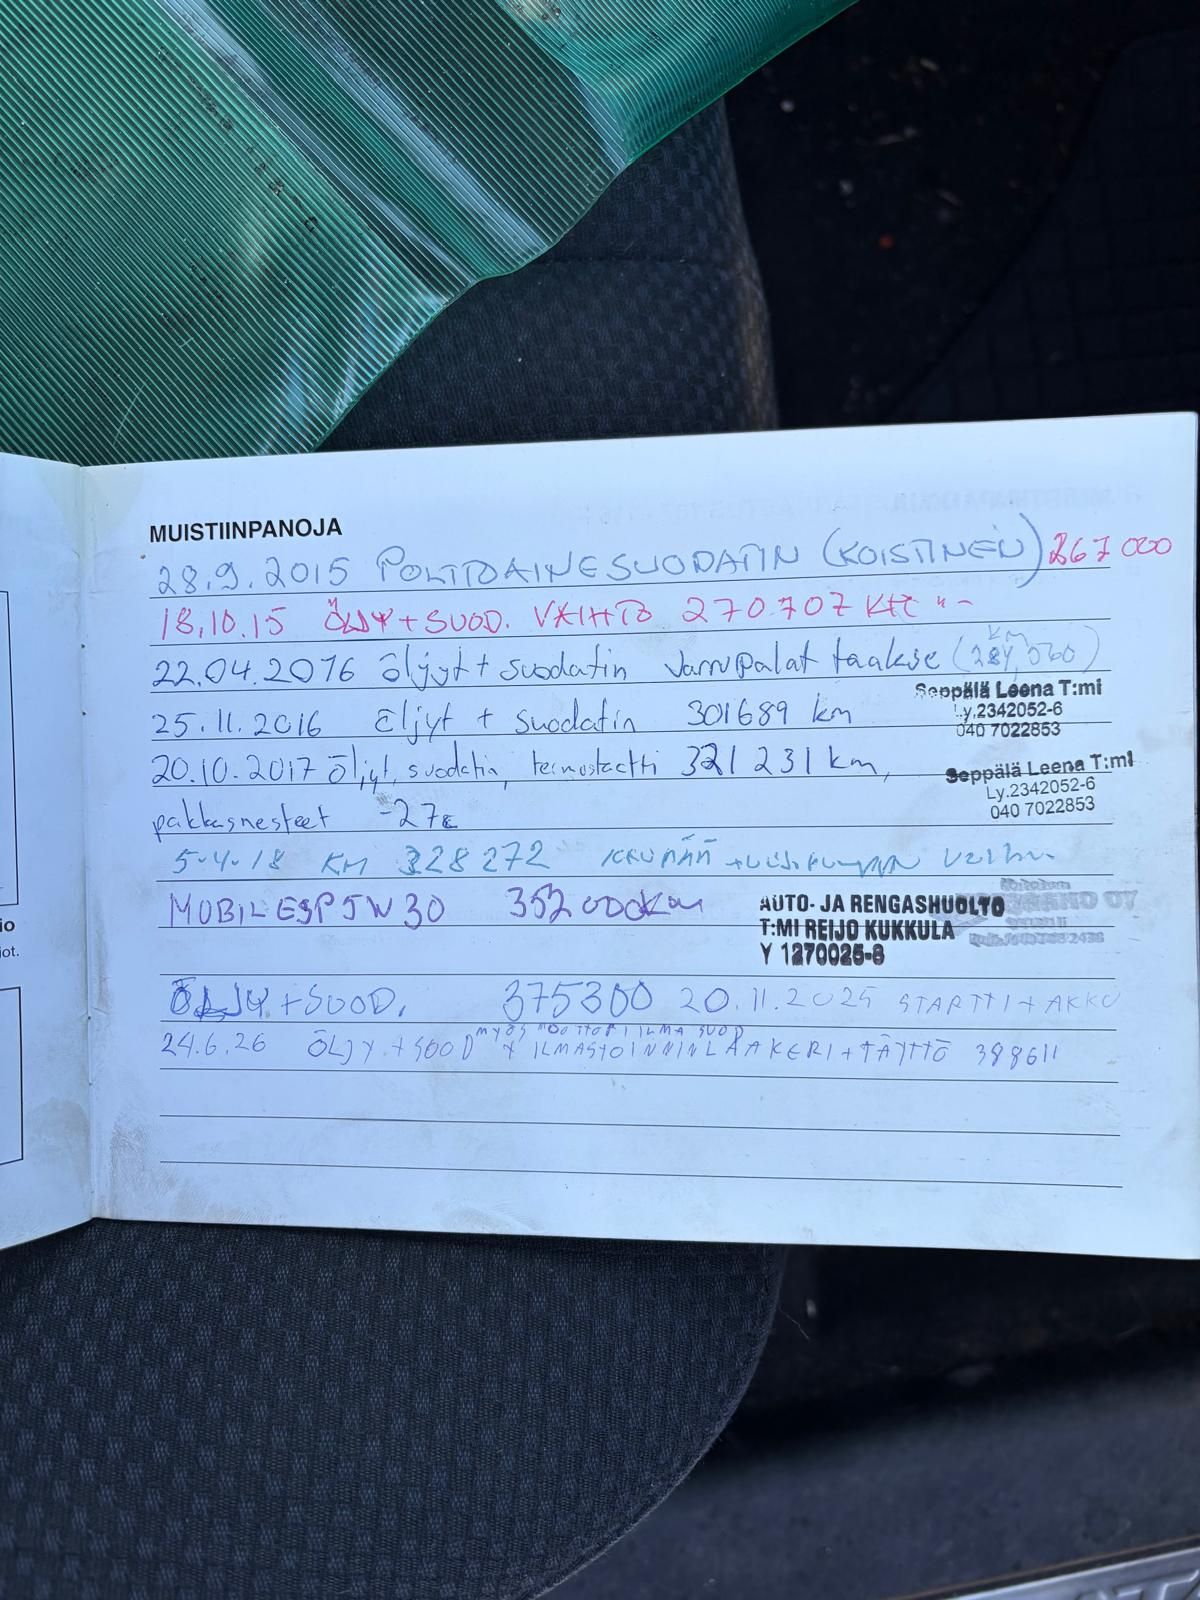 MUISTIINPANOJA
28.9.2015 POLTTOAINESUODATIN (KOISTINEN) 267 000
18.10.15 ÖLJY + SUOD. VAIHTO 270707 "-
22.04.2016 öljyt + suodatin Jarrupalat taakse (284,060) km
Seppälä Leena T:mi
25.11.2016 öljyt + suodatin 301689 km
Ly.2342052-6
040 7022853
20.10.2017 öljyt, suodatin, termostaatti 321 231 km,
Seppälä Leena T:mi
Ly.2342052-6
pakkasnesteet -27c
040 7022853
5.4.18 KM 328 272
MOBIL ESP 5W30 352 000km
AUTO- JA RENGASHUOLTO
T:MI REIJO KUKKULA
Y 1270025-8
ÖLJY + SUOD. 375300 20.11.2025 STARTTI + AKKU
MYÖS MOOTTORI ILMA SUOD
24.6.26 ÖLJY + SUOD + ILMASTOINNIN LAAKERI + TÄYTTÖ 388611
io
jot.